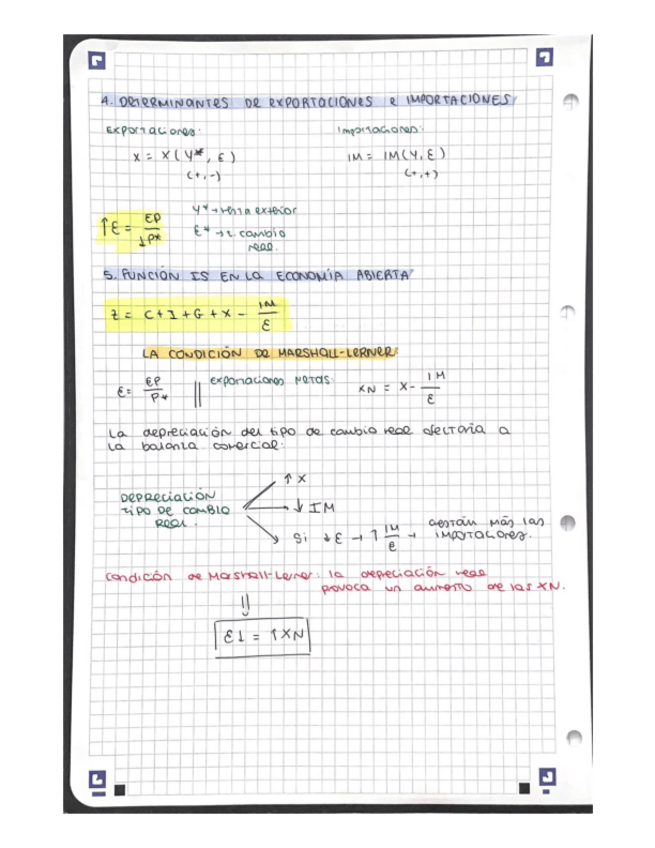 4. DETERMINANTES DE EXPORTACIONES E IMPORTACIONES
EXPORTACIONES: Importaciones:
X = X(Y*, ε) IM = IM(Y, ε)
(+,-) (+,+)
↑ε = EP / ↓P* Y* → renta exterior
ε* → t. cambio
real.
5. FUNCIÓN IS EN LA ECONOMÍA ABIERTA
Z = C + I + G + X - IM / ε
LA CONDICIÓN DE MARSHALL-LERNER
ε = EP / P* || exportaciones netas: XN = X - IM / ε
La depreciación del tipo de cambio real afectaría a
la balanza comercial:
↑ X
DEPRECIACIÓN
TIPO DE CAMBIO → ↓ IM
REAL.
Si ↓ε → ↑ IM / ε → más las
importaciones.
Condición de Marshall-Lerner: la depreciación real
provoca un aumento de las XN.
⇓
ε↓ = ↑XN